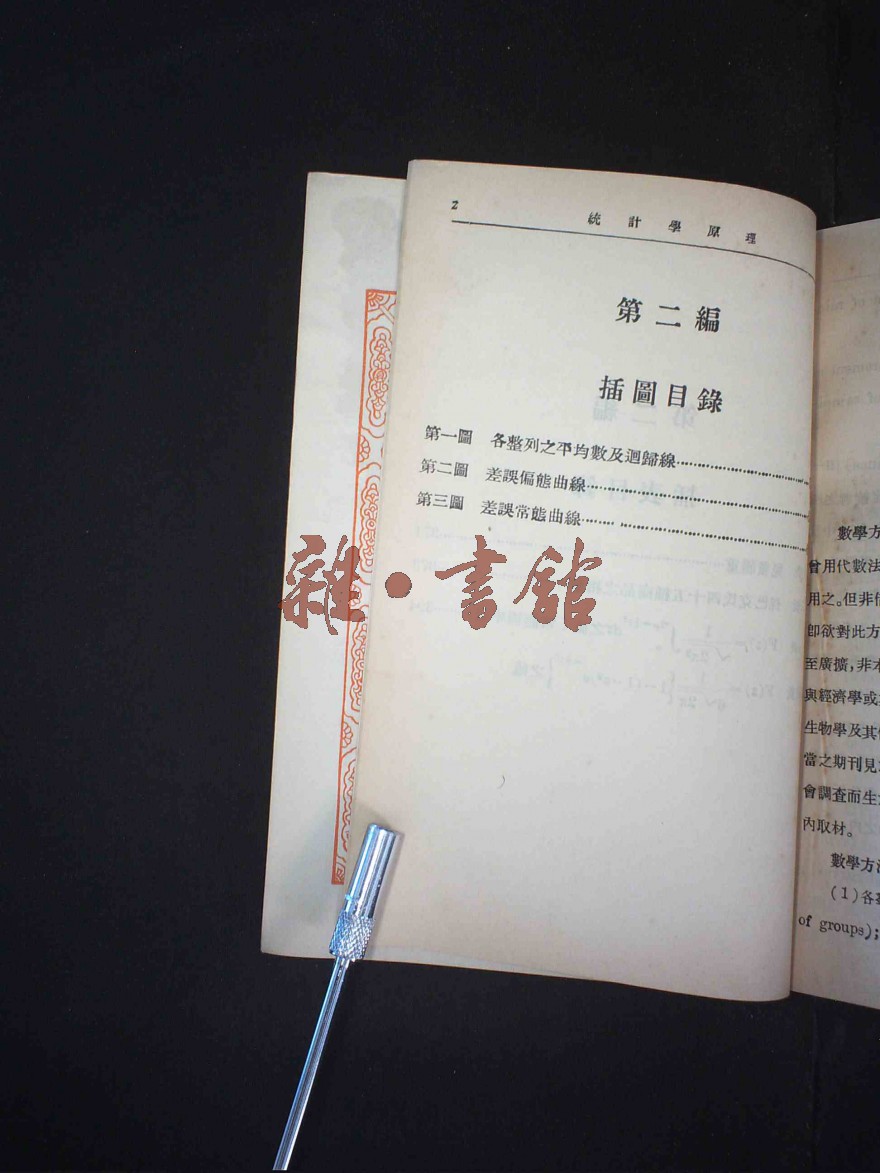 2
統計學原理
第二編
插圖目錄
第一圖 各整列之平均數及迴歸線
第二圖 差誤偏態曲線
第三圖 差誤常態曲線
雜·書館
數學方
曾用代數法
用之。但非
卽欲對此方
至廣擴,非本
與經濟學或
生物學及其
當之期刊見
會調查而生
內取材。
數學方
(1)各
of groups);